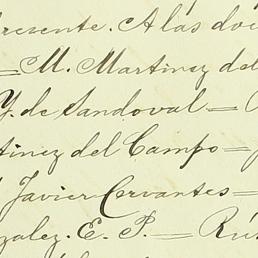 presente. A las doc
= M. Martinez del
Y. de Sandoval =
tinez del Campo =
Javier Cervantes =
zalez. E. P. = Rú